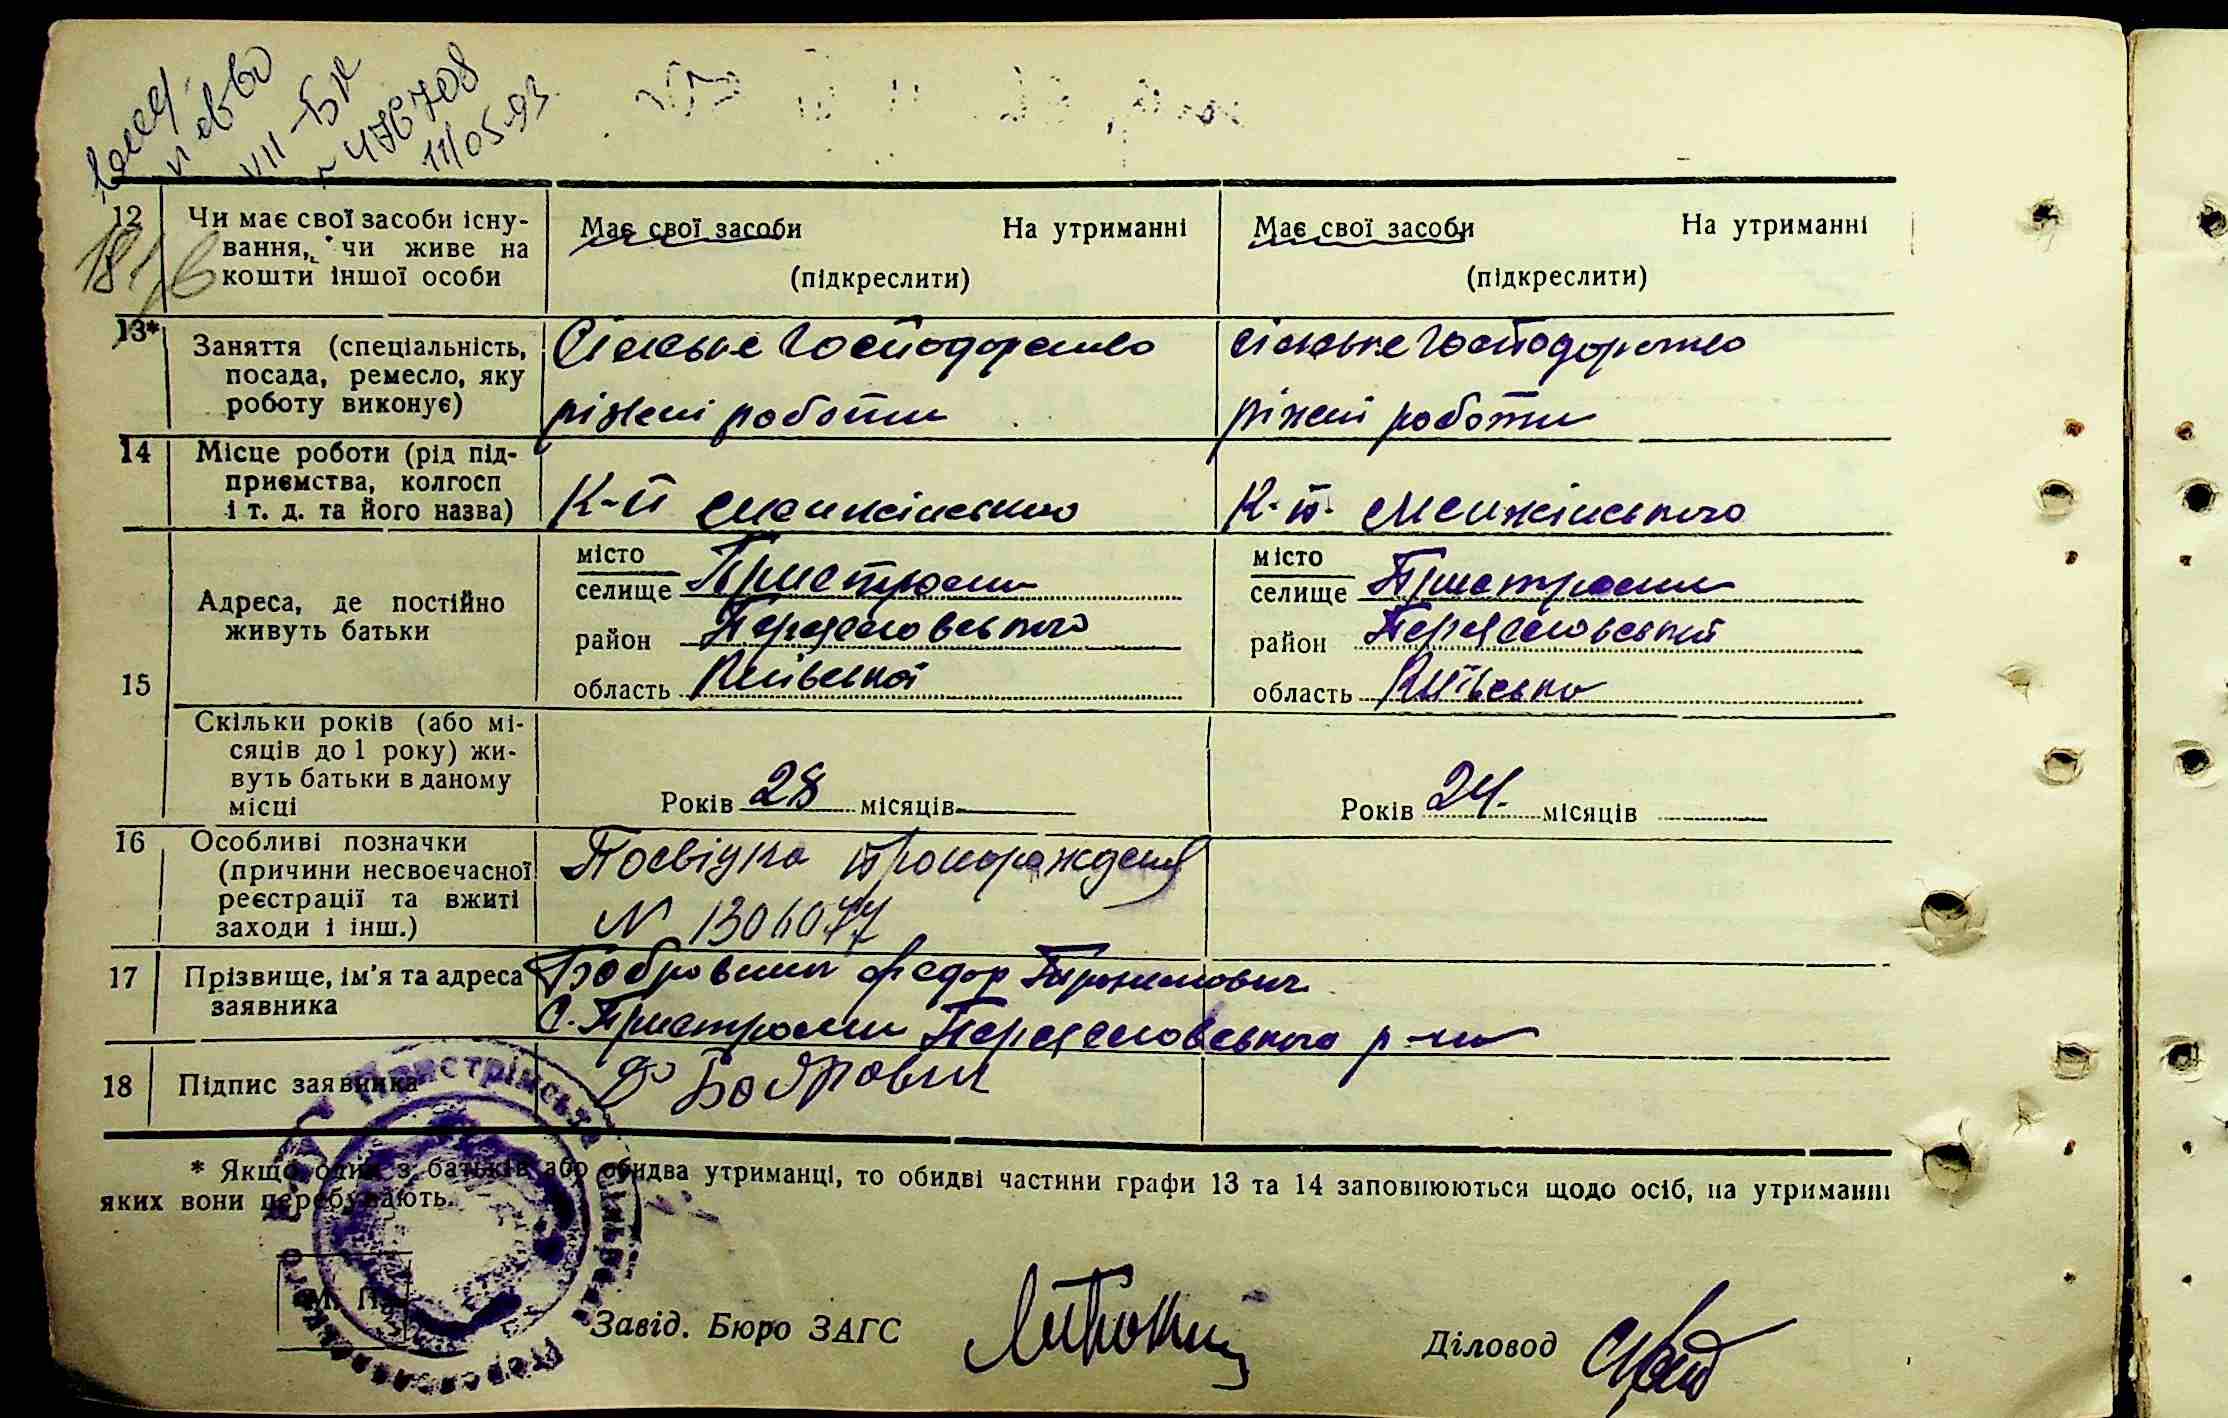 VII-БК
476708
11/05-93
12
Чи має свої засоби існування, чи живе на кошти іншої особи
Має свої засоби На утриманні
(підкреслити)
Має свої засоби На утриманні
(підкреслити)
13*
Заняття (спеціальність,
посада, ремесло, яку
роботу виконує)
Сільське господарство
різні роботи
сільське господарство
різні роботи
14
Місце роботи (рід під-
приємства, колгосп
і т. д. та його назва)
К-п Менжінського
К-п. Менжінського
15
Адреса, де постійно
живуть батьки
місто
селище Пристроми
район Переяславського
область Київської
місто
селище Пристроми
район Переяславський
область Київська
Скільки років (або мі-
сяців до 1 року) жи-
вуть батьки в даному
місці
Років 28 місяців
Років 24. місяців
16
Особливі позначки
(причини несвоєчасної
реєстрації та вжиті
заходи і інш.)
Посвідка
N
17
Прізвище, ім'я та адреса
заявника
Бобровник Федор
с. Пристроми Переяславського р-ну
18
Підпис заявника
Ф Бобровник
* Якщо один з батьків або обидва утриманці, то обидві частини графи 13 та 14 заповнюються щодо осіб, на утриманні
яких вони перебувають.
М. П.
Завід. Бюро ЗАГС
Діловод